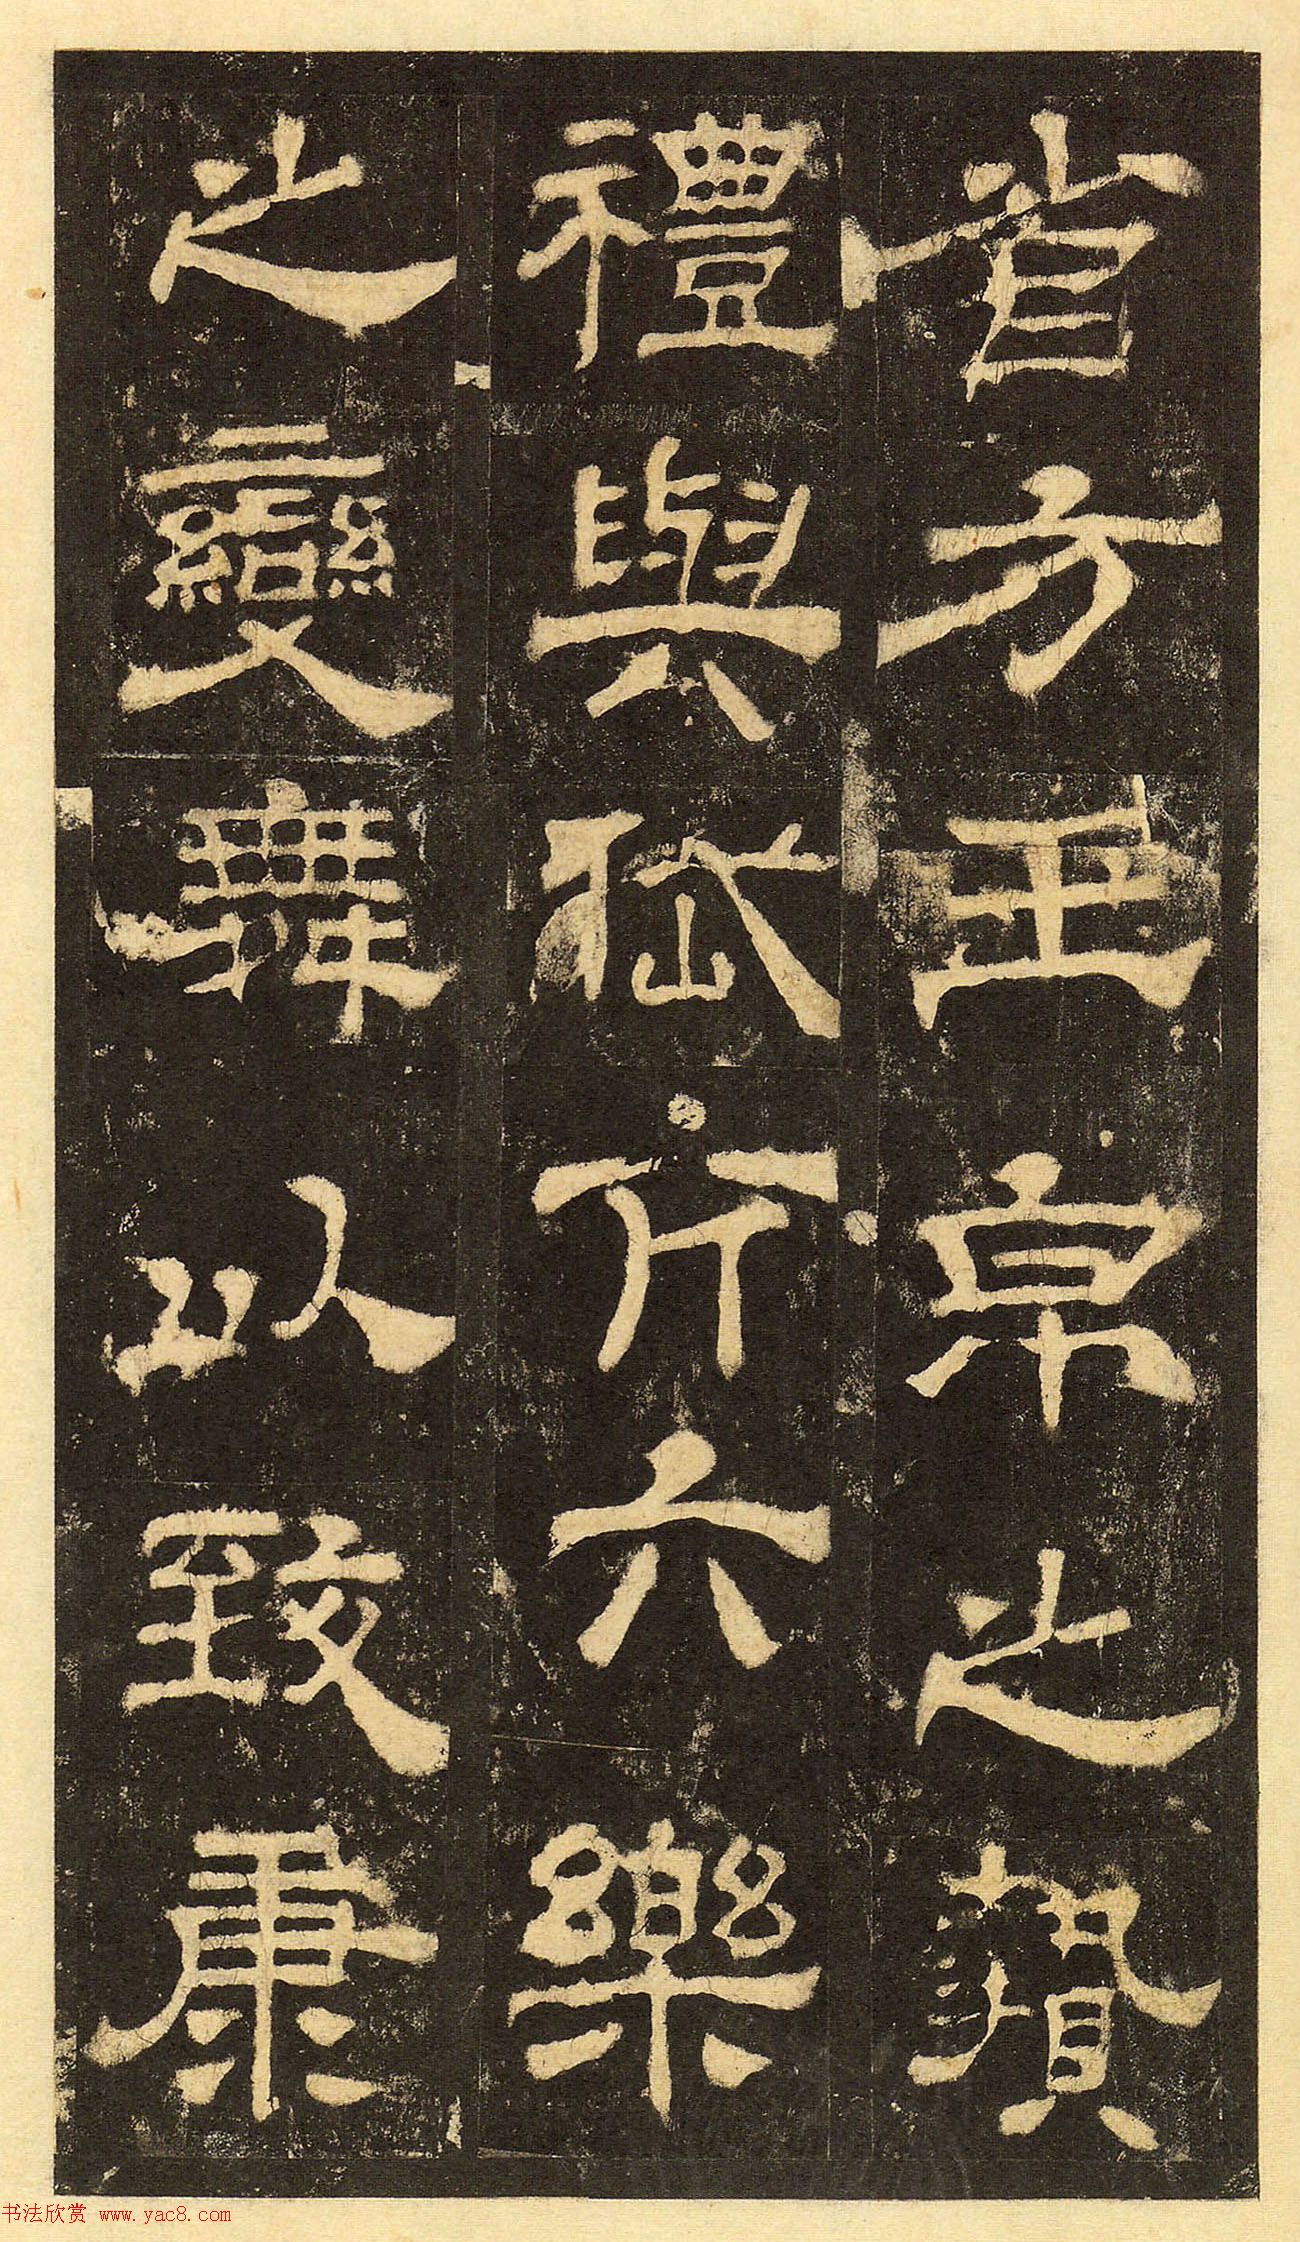 省方玉帛之贄
禮與岱亢六樂
之變舞以致康
书法欣赏 www.yac8.com